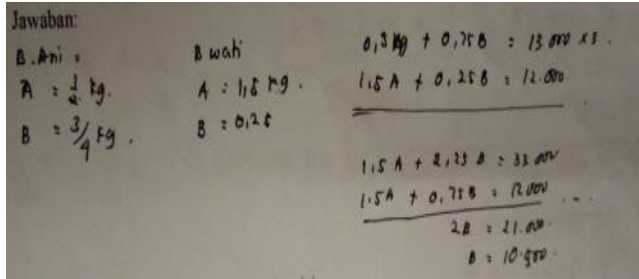 Jawaban:
B. Ani =
A = 1/2 kg.
B = 3/4 kg.
B wati
A : 1,5 kg.
B = 0,25
0,5 kg + 0,75B = 13.000 x3.
1,5A + 0,25B = 12.000.
1,5A + 2,25 B = 33.000
1.5A + 0,75B = 12.000
2B = 21.000.
B = 10.500.